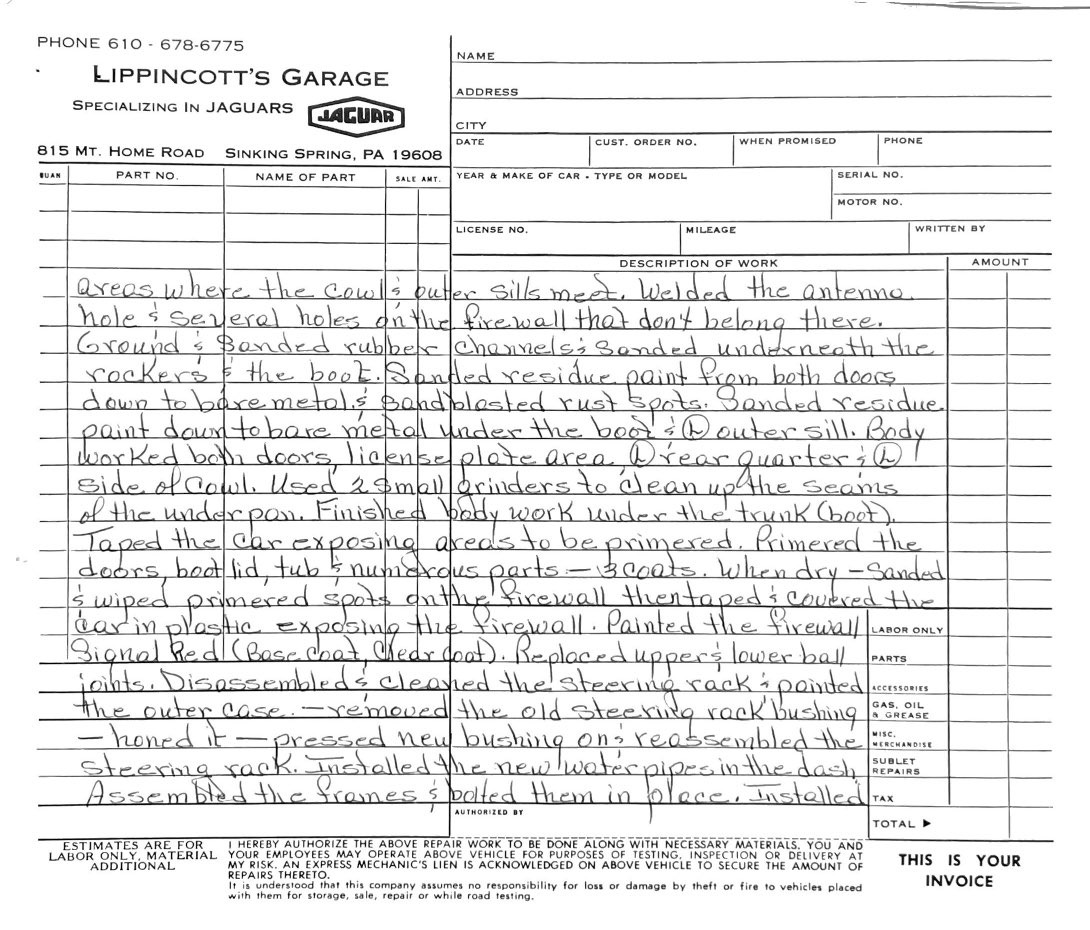 PHONE 610 - 678-6775
LIPPINCOTT'S GARAGE
SPECIALIZING IN JAGUARS JAGUAR
815 MT. HOME ROAD SINKING SPRING, PA 19608
NAME
ADDRESS
CITY
DATE CUST. ORDER NO. WHEN PROMISED PHONE
QUAN PART NO. NAME OF PART SALE AMT.
YEAR & MAKE OF CAR - TYPE OR MODEL SERIAL NO.
MOTOR NO.
LICENSE NO. MILEAGE WRITTEN BY
DESCRIPTION OF WORK AMOUNT
areas where the cowl & outer sills meet. Welded the antenna
hole & several holes on the firewall that don't belong there.
Ground & Sanded rubber channels & Sanded underneath the
rockers & the boot. Sanded residue paint from both doors
down to bare metal & Sandblasted rust spots. Sanded residue
paint down to bare metal under the boot & (L) outer sill. Body
worked both doors, license plate area, (L) rear quarter & (L)
side of Cowl. Used 2 Small grinders to clean up the seams
of the underpan. Finished body work under the trunk (boot).
Taped the car exposing areas to be primered. Primered the
doors, boot lid, tub & numerous parts — 3 coats. When dry — Sanded
& wiped primered spots on the firewall then taped & covered the
car in plastic exposing the firewall. Painted the firewall
Signal Red (Base Coat, Clear Coat). Replaced upper & lower ball
joints. Disassembled & cleaned the steering rack & painted
the outer case. — removed the old steering rack bushing
— honed it — pressed new bushing on & reassembled the
steering rack. Installed the new water pipes in the dash
Assembled the frames & bolted them in place. Installed
LABOR ONLY
PARTS
ACCESSORIES
GAS, OIL
& GREASE
MISC.
MERCHANDISE
SUBLET
REPAIRS
TAX
AUTHORIZED BY
TOTAL ►
ESTIMATES ARE FOR
LABOR ONLY, MATERIAL
ADDITIONAL
I HEREBY AUTHORIZE THE ABOVE REPAIR WORK TO BE DONE ALONG WITH NECESSARY MATERIALS. YOU AND
YOUR EMPLOYEES MAY OPERATE ABOVE VEHICLE FOR PURPOSES OF TESTING, INSPECTION OR DELIVERY AT
MY RISK. AN EXPRESS MECHANIC'S LIEN IS ACKNOWLEDGED ON ABOVE VEHICLE TO SECURE THE AMOUNT OF
REPAIRS THERETO.
It is understood that this company assumes no responsibility for loss or damage by theft or fire to vehicles placed
with them for storage, sale, repair or while road testing.
THIS IS YOUR
INVOICE